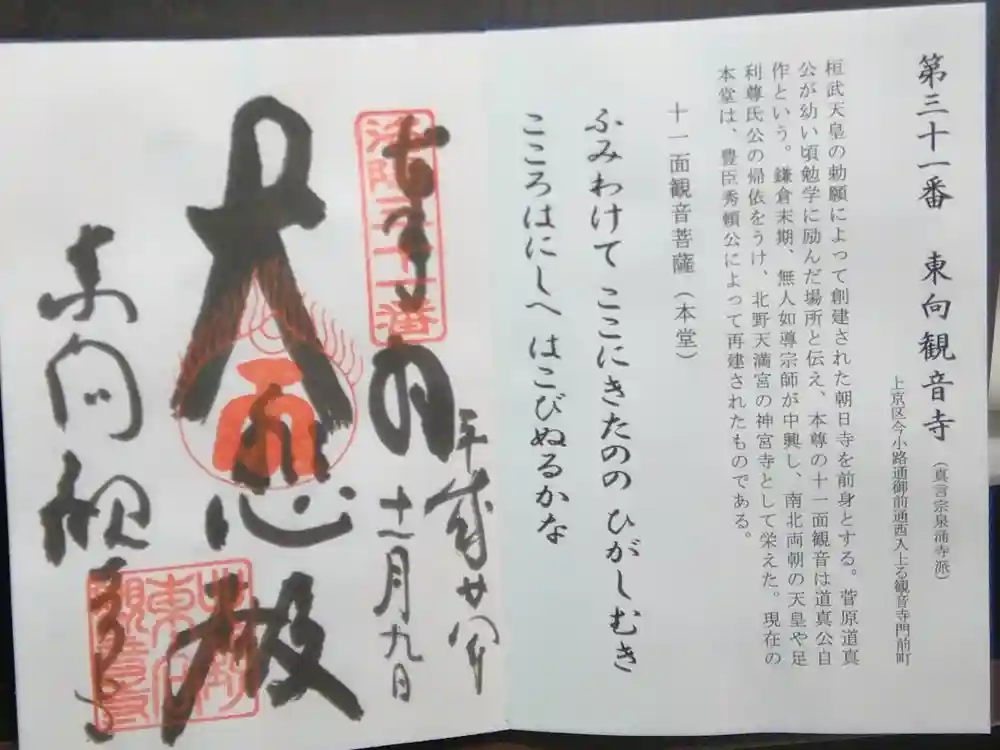 第三十一番　東向観音寺（真言宗泉涌寺派）
上京区今小路通御前通西入上る観音寺門前町
桓武天皇の勅願によって創建された朝日寺を前身とする。菅原道真
公が幼い頃勉学に励んだ場所と伝え、本尊の十一面観音は道真公自
作という。鎌倉末期、無人如導宗師が中興し、南北両朝の天皇や足
利尊氏公の帰依をうけ、北野天満宮の神宮寺として栄えた。現在の
本堂は、豊臣秀頼公によって再建されたものである。
十一面観音菩薩（本堂）
ふみわけて ここにきたのの ひがしむき
こころはにしへ はこびぬるかな
洛陽三十一番
平成廿八年
十一月九日
大悲殿
東向観音寺